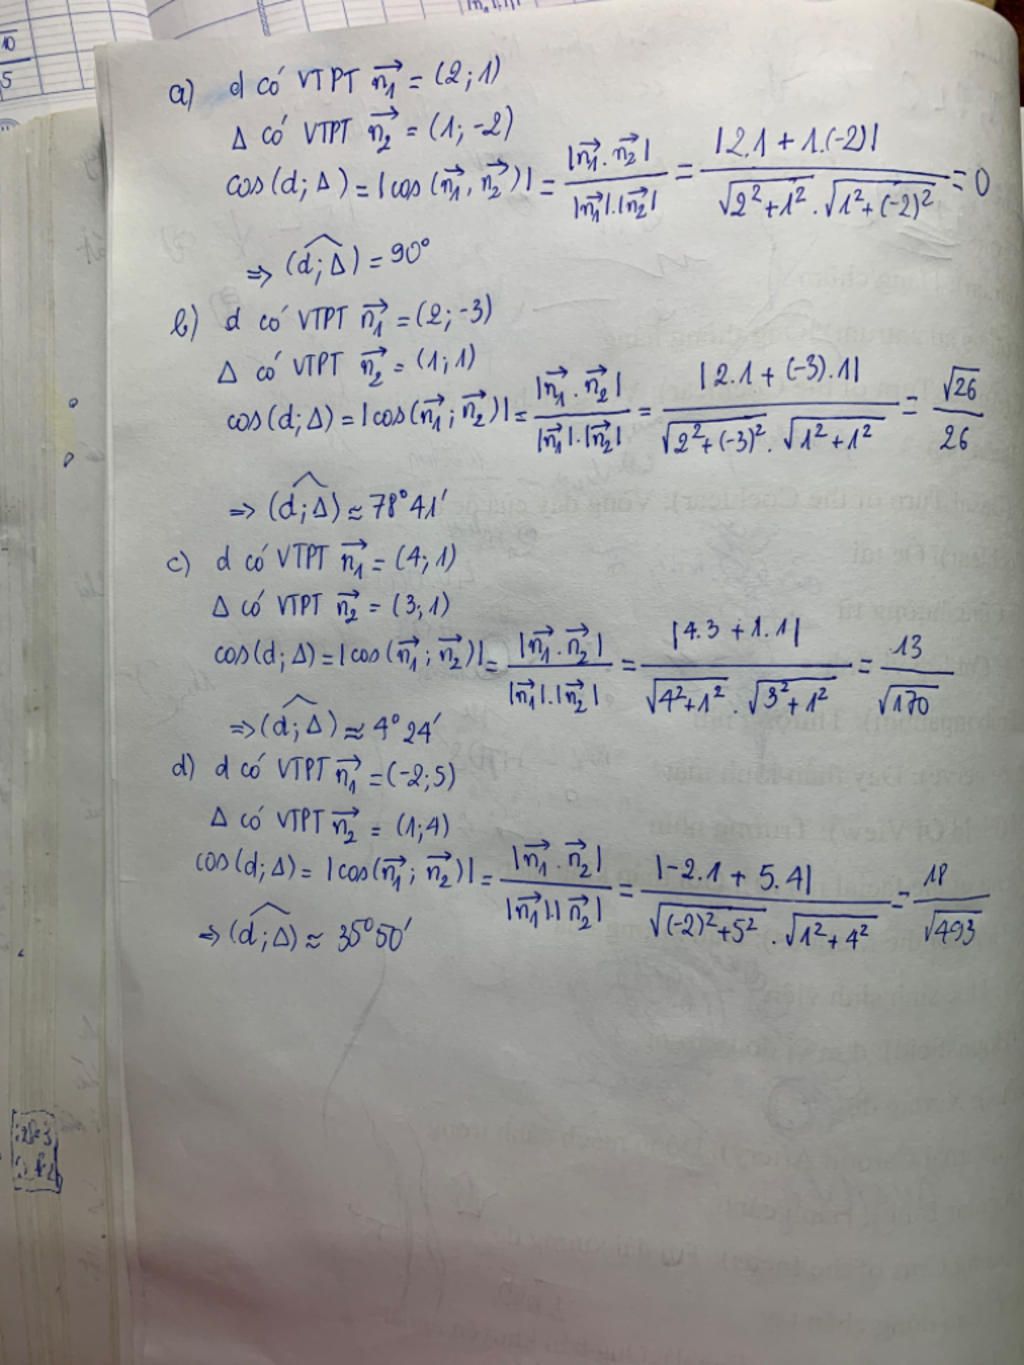 10
5
a) d có VTPT n₁→ = (2; 1)
Δ có VTPT n₂→ = (1; -2)
cos(d; Δ) = |cos(n₁→, n₂→)| = |n₁→ . n₂→| / |n₁→|.|n₂→| = |2.1 + 1.(-2)| / √(2²+1²) . √(1²+(-2)²) = 0
⇒ (d; Δ)^ = 90°
b) d có VTPT n₁→ = (2; -3)
Δ có VTPT n₂→ = (1; 1)
cos(d; Δ) = |cos(n₁→; n₂→)| = |n₁→ . n₂→| / |n₁→|.|n₂→| = |2.1 + (-3).1| / √(2²+(-3)²) . √(1²+1²) = √26 / 26
⇒ (d; Δ)^ ≈ 78°41'
c) d có VTPT n₁→ = (4; 1)
Δ có VTPT n₂→ = (3; 1)
cos(d; Δ) = |cos(n₁→; n₂→)| = |n₁→ . n₂→| / |n₁→|.|n₂→| = |4.3 + 1.1| / √(4²+1²) . √(3²+1²) = 13 / √170
⇒ (d; Δ)^ ≈ 4°24'
d) d có VTPT n₁→ = (-2; 5)
Δ có VTPT n₂→ = (1; 4)
cos(d; Δ) = |cos(n₁→; n₂→)| = |n₁→ . n₂→| / |n₁→|.|n₂→| = |-2.1 + 5.4| / √((-2)²+5²) . √(1²+4²) = 18 / √493
⇒ (d; Δ)^ ≈ 35°50'